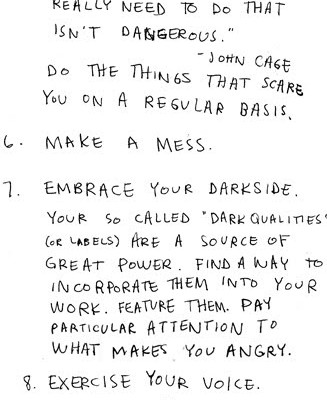 REALLY NEED TO DO THAT
ISN'T DANGEROUS."
-JOHN CAGE
DO THE THINGS THAT SCARE
YOU ON A REGULAR BASIS.
6. MAKE A MESS.
7. EMBRACE YOUR DARKSIDE.
YOUR SO CALLED "DARK QUALITIES"
(OR LABELS) ARE A SOURCE OF
GREAT POWER. FIND A WAY TO
INCORPORATE THEM INTO YOUR
WORK. FEATURE THEM. PAY
PARTICULAR ATTENTION TO
WHAT MAKES YOU ANGRY.
8. EXERCISE YOUR VOICE.